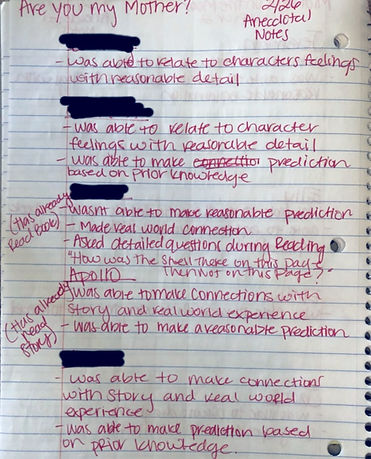 Are you my Mother?
2/26
Anecdotal
Notes
- was able to relate to characters feelings
with reasonable detail
- was able to relate to character
feelings with reasonable detail
- was able to make prediction
based on prior knowledge
(Has already
Read Book)
- wasnt able to make reasonable prediction
- Made real world connection
- Asked detailed questions during Reading
"How was the shell there on this page
then not on this page?"
Apollo
(Has already
Read
Story)
- was able to make connections with
story and real world experience
- was able to make a reasonable prediction
- was able to make connections
with story and real world
experience
- was able to make prediction based
on prior knowledge.